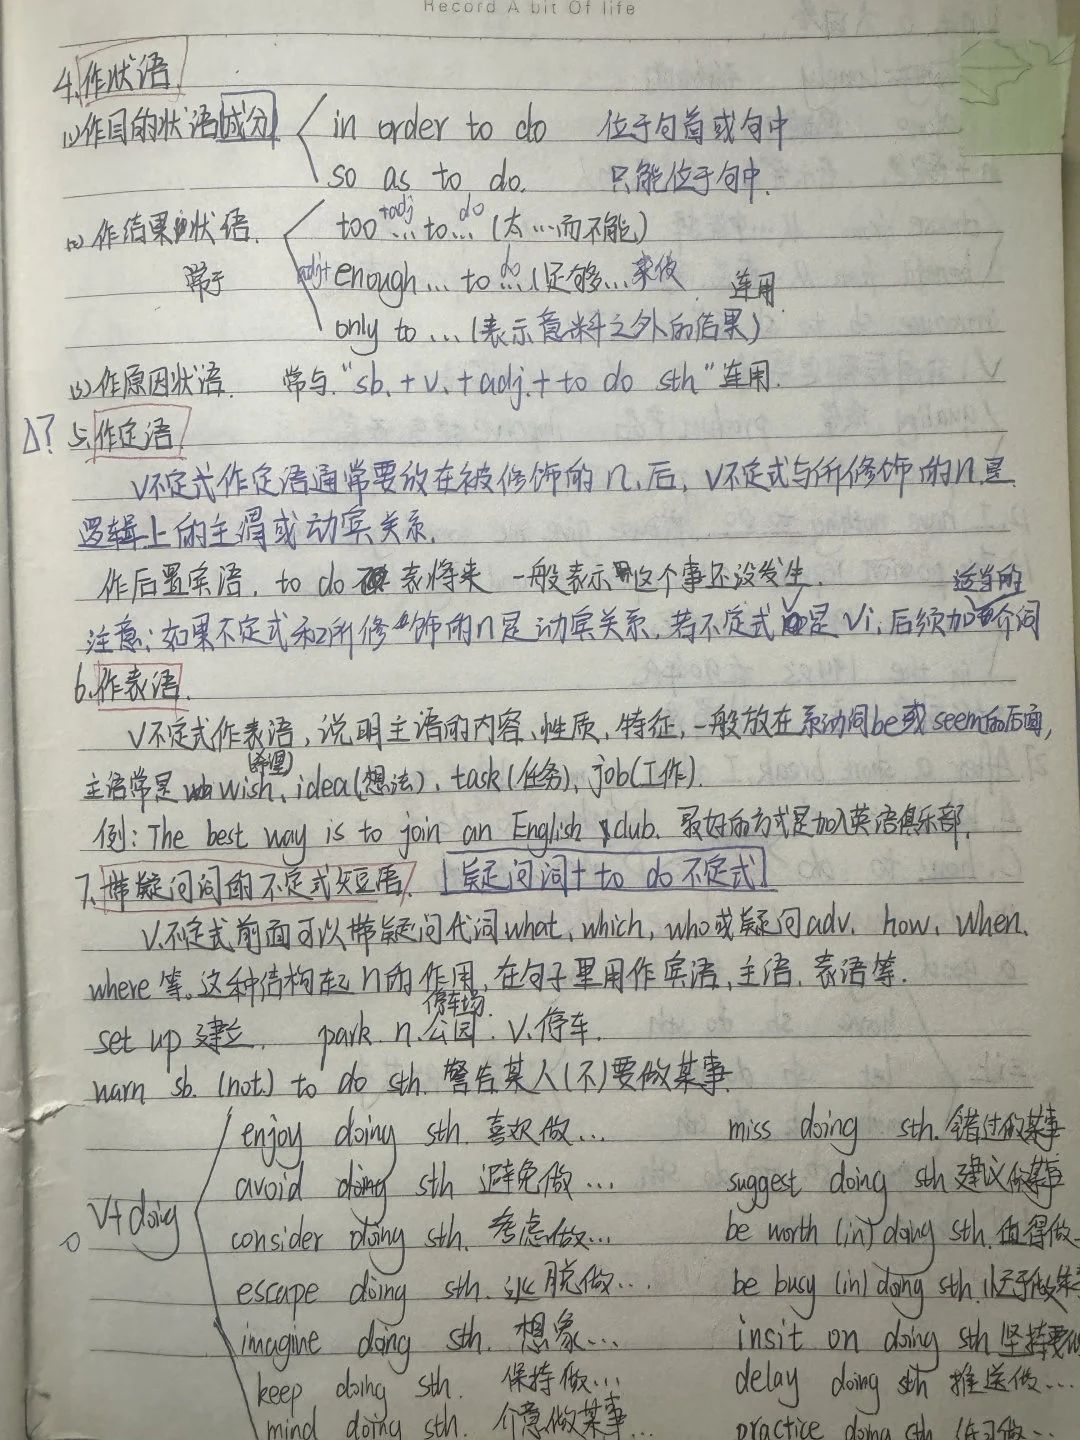 Record A bit Of life
4.作状语
(1)作目的状语(成分) in order to do 位于句首或句中
so as to do. 只能位于句中.
(2)作结果状语. too +adj ... to do ... (太…而不能)
常于 adj+ enough ... to do ... (足够…来做 连用
only to ... (表示意料之外的结果)
(3)作原因状语. 常与 "sb. + v. + adj. + to do sth" 连用.
△? 5.作定语
V不定式作定语通常要放在被修饰的n.后, V不定式与所修饰的n.是
逻辑上的主谓或动宾关系.
作后置宾语, to do 表将来 一般表示 这个事还没发生.
适当的
注意: 如果不定式和所修饰的n是动宾关系, 若不定式是Vi, 后须加介词
6.作表语.
V不定式作表语, 说明主语的内容、性质, 特征, 一般放在系动词be或seem的后面,
主语常是 wish(希望)、idea(想法)、task(任务)、job(工作).
例: The best way is to join an English club. 最好的方式是加入英语俱乐部.
7.带疑问词的不定式短语. [疑问词+to do不定式]
V.不定式前面可以带疑问代词what、which, who或疑问adv. how, when、
where等。这种结构起n的作用, 在句子里用作宾语, 主语, 表语等.
set up 建立. park n.公园.停车场. V.停车.
warn sb. (not) to do sth. 警告某人(不)要做某事
V+doing
enjoy doing sth. 喜欢做… miss doing sth. 错过做某事
avoid doing sth 避免做… suggest doing sth 建议做某事
consider doing sth. 考虑做… be worth (in) doing sth. 值得做
escape doing sth. 逃脱做… be busy (in) doing sth.
imagine doing sth. 想象… insit on doing sth 坚持要做
keep doing sth. 保持做… delay doing sth 推迟做…
mind doing sth. 介意做某事… practice doing sth 练习做…